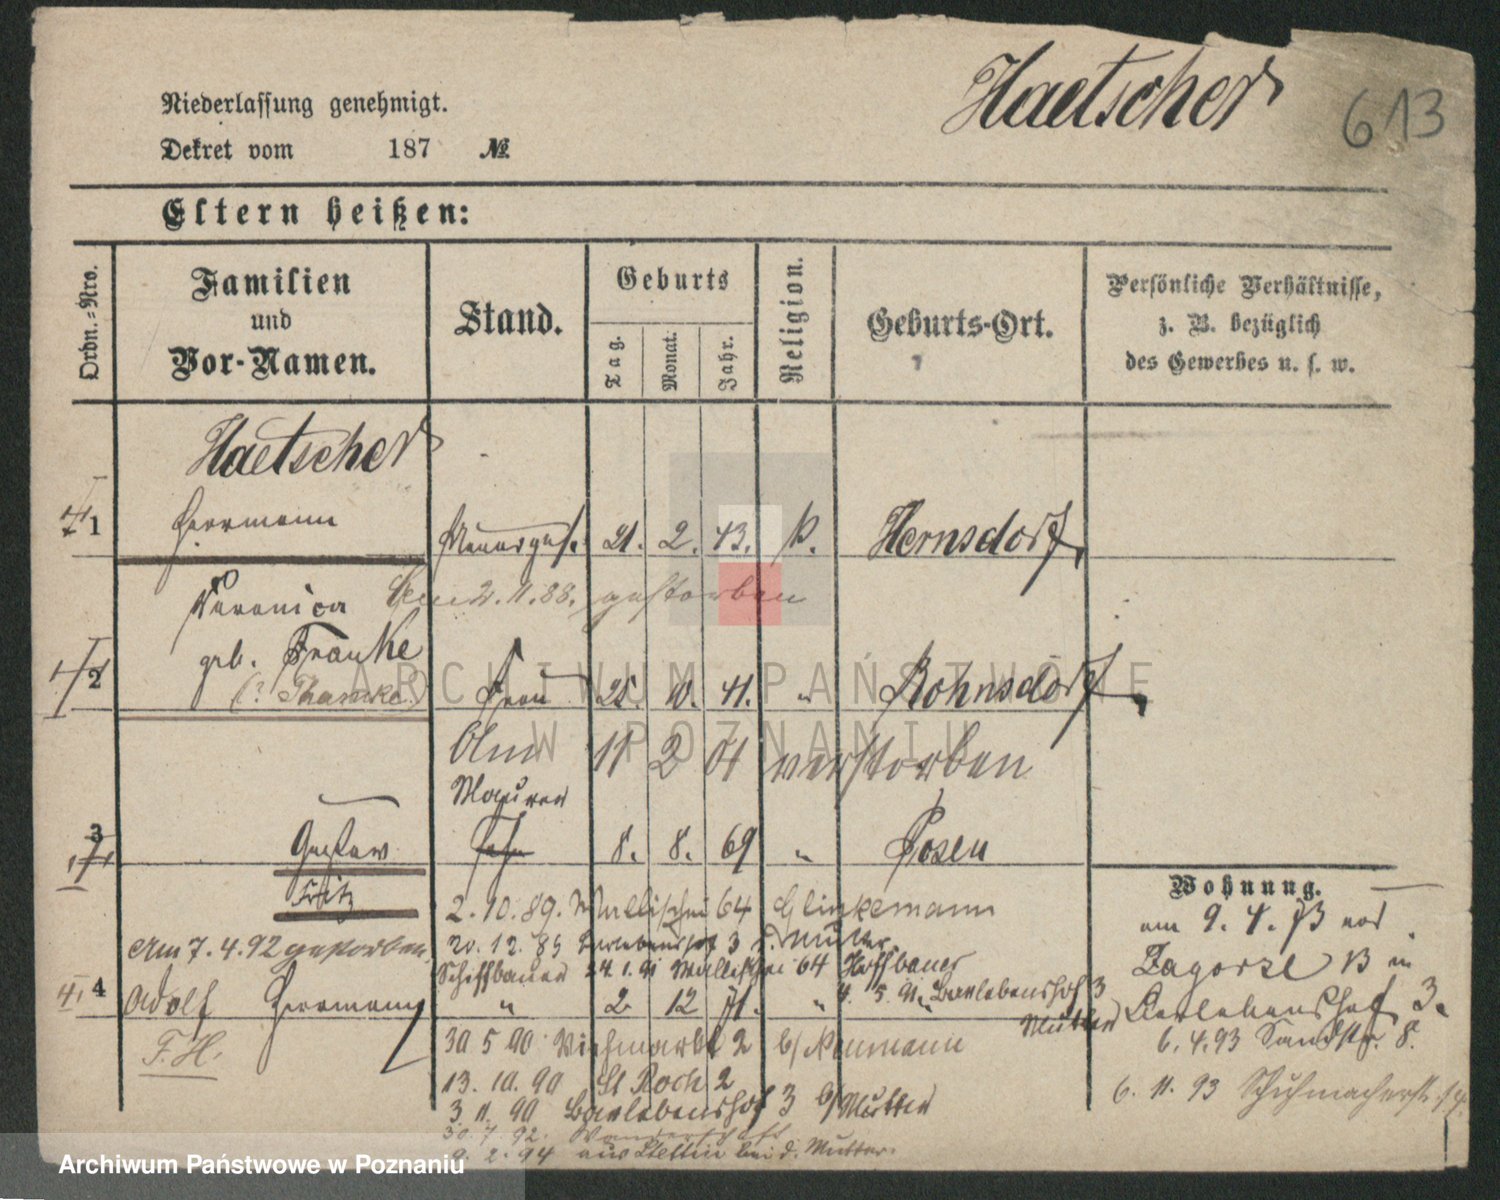 Haetscher
613
Niederlassung genehmigt.
Dekret vom 187 №
Eltern heißen:
Ordn.-Nro.
Familien
und
Vor-Namen.
Stand.
Geburts
Tag.
Monat.
Jahr.
Religion.
Geburts-Ort.
Persönliche Verhältnisse,
z. B. bezüglich
des Gewerbes u. s. w.
Haetscher
1 Herrmann Maurerges. 21. 2. 43. k. Hernsdorf
Veronica Am 2.11.88. gestorben
geb. Franke
2 (? Thamke) Frau 25. 10. 41. " Rohnsdorf
Am 11 2 01 verstorben
Maurer
3 Gustav Sohn 8. 8. 69 " Posen
Fritz
2. 10. 89. Wallischei 64 Glinkemann
Am 7. 4. 92 gestorben.
20. 12. 89 Berlebenshof 3 Mutter
Schiffbauer 24. 1. 91 Wallischei 64 Hoffbauer
4. 5. 91. Barlebenshof 3
Mutter
4 Adolf Herrmann " 2 12 71. "
F. H.
30 5 90 Viehmarkt 2 b/ Neumann
13. 10. 90 St Roch 2
3. 11. 90 Barlebenshof 3 b/ Mutter
30. 7. 92. Wanderschaft
9. 2. 94 aus Stettin bei d. Mutter.
Wohnung.
am 9. 4. 73 von
Zagorze 13 in
Berlebenshof 3.
6. 4. 93 Sandstr. 8.
6. 11. 93 Schuhmacherstr.
ARCHIWUM PAŃSTWOWE
W POZNANIU
Archiwum Państwowe w Poznaniu